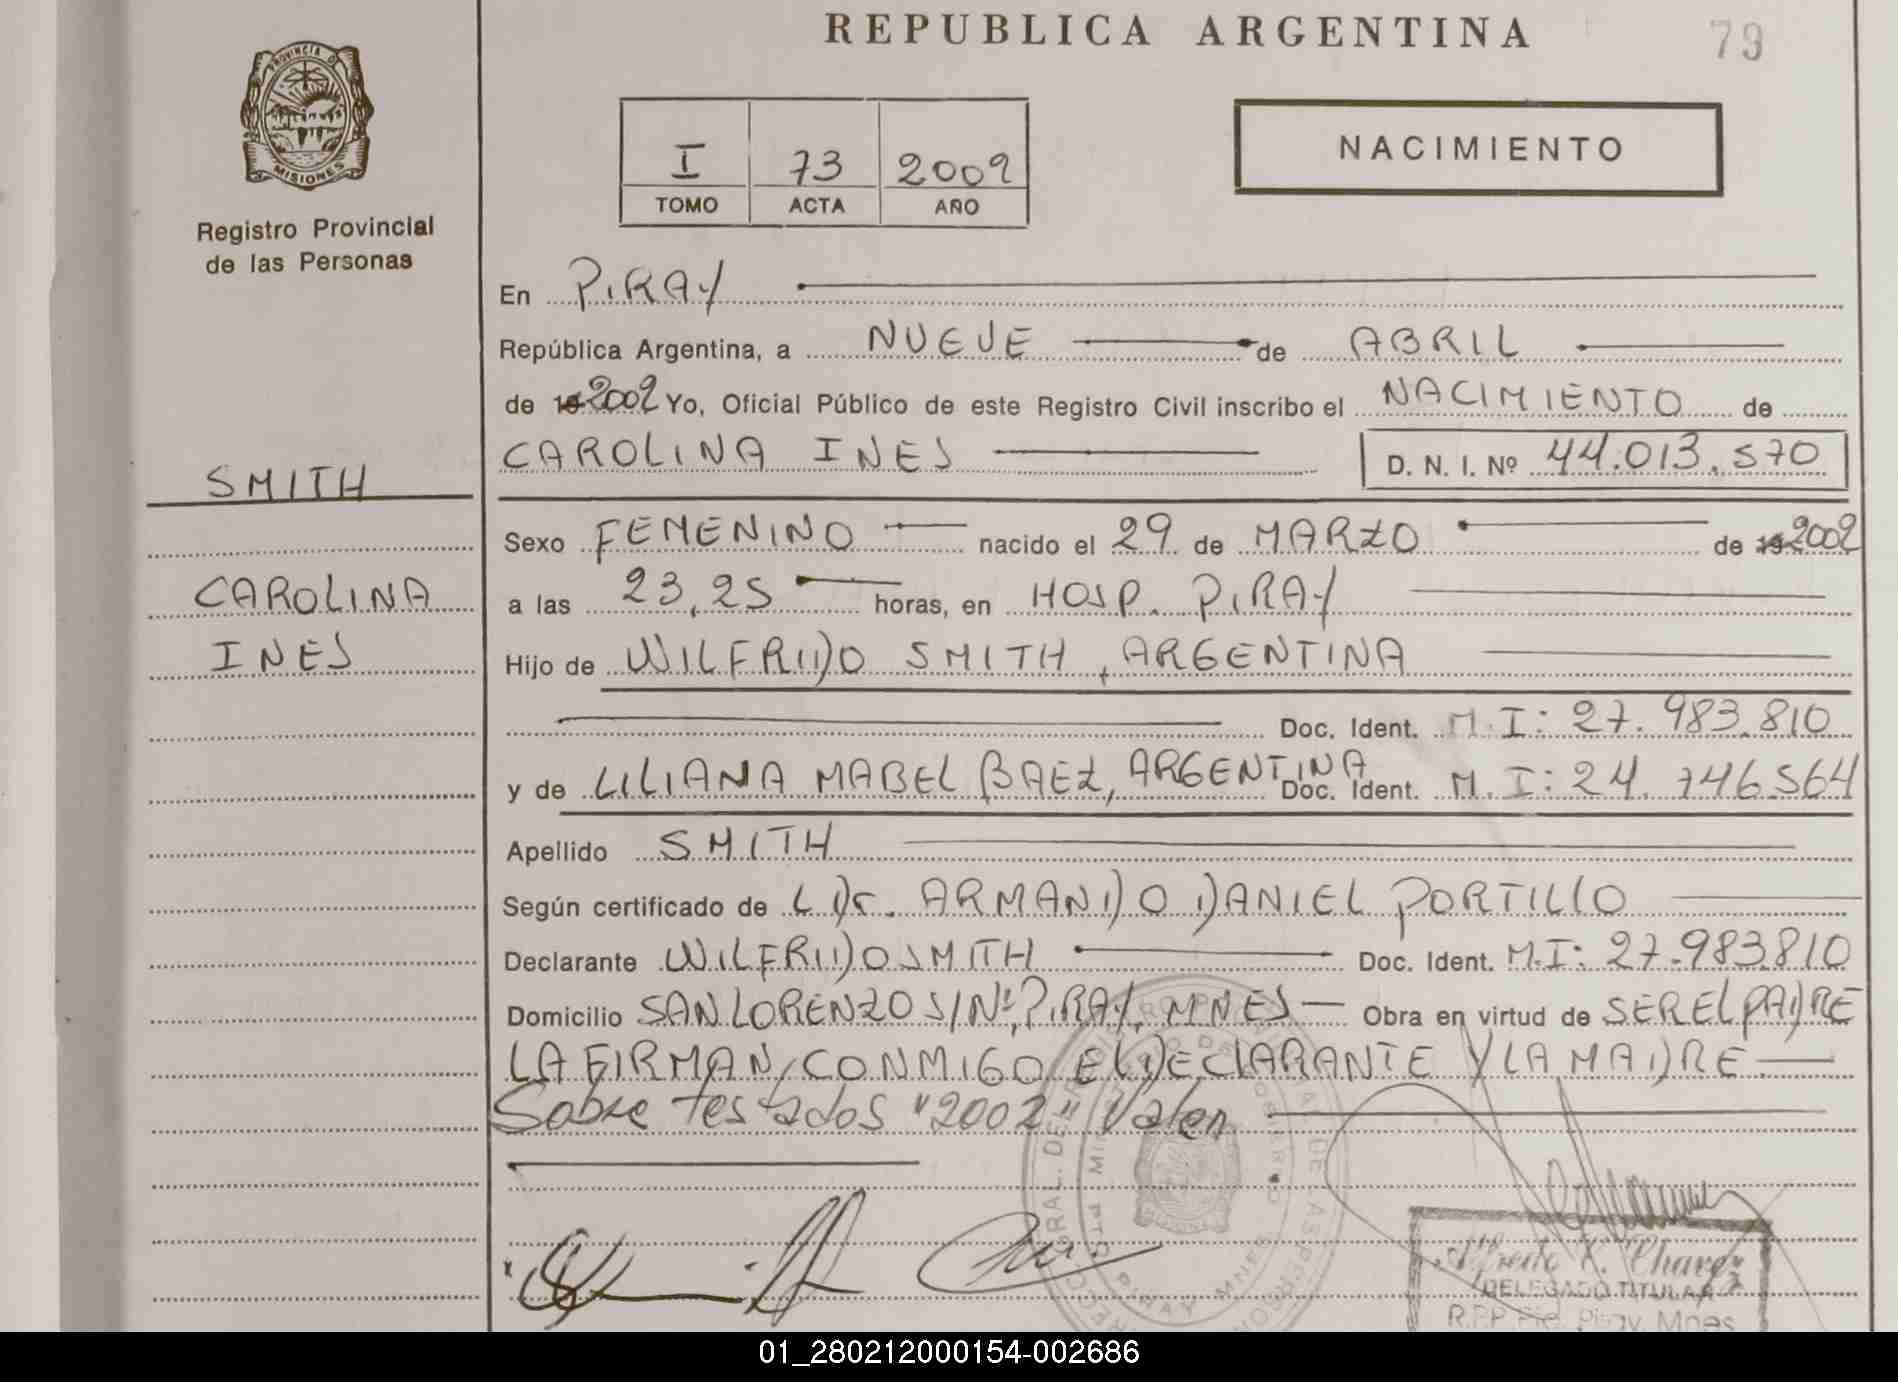 REPUBLICA ARGENTINA
79
PROVINCIA D
MISIONES
Registro Provincial
de las Personas
I 73 2002
TOMO ACTA AÑO
NACIMIENTO
En PIRAY
República Argentina, a NUEVE de ABRIL
de 19 2002 Yo, Oficial Público de este Registro Civil inscribo el NACIMIENTO de
CAROLINA INES D. N. I. Nº 44.013.570
SMITH
CAROLINA
INES
Sexo FEMENINO nacido el 29 de MARZO de 19 2002
a las 23,25 horas, en HOSP. PIRAY
Hijo de WILFRIDO SMITH, ARGENTINA
Doc. Ident. M.I: 27.983.810
y de LILIANA MABEL BAEZ, ARGENTINA Doc. Ident. M.I: 24.746.564
Apellido SMITH
Según certificado de L Dr. ARMANDO DANIEL PORTILLO
Declarante WILFRIDO SMITH Doc. Ident. M.I: 27.983.810
Domicilio SAN LORENZO S/Nº, PIRAY, MNES Obra en virtud de SER EL PADRE
LA FIRMAN CONMIGO EL DECLARANTE Y LA MADRE
Sobre testados "2002" Valen
PIRAY MNES
Alfredo R. Chavez
DELEGADO TITULAR
R.P.P. Piray, Mnes
01_280212000154-002686